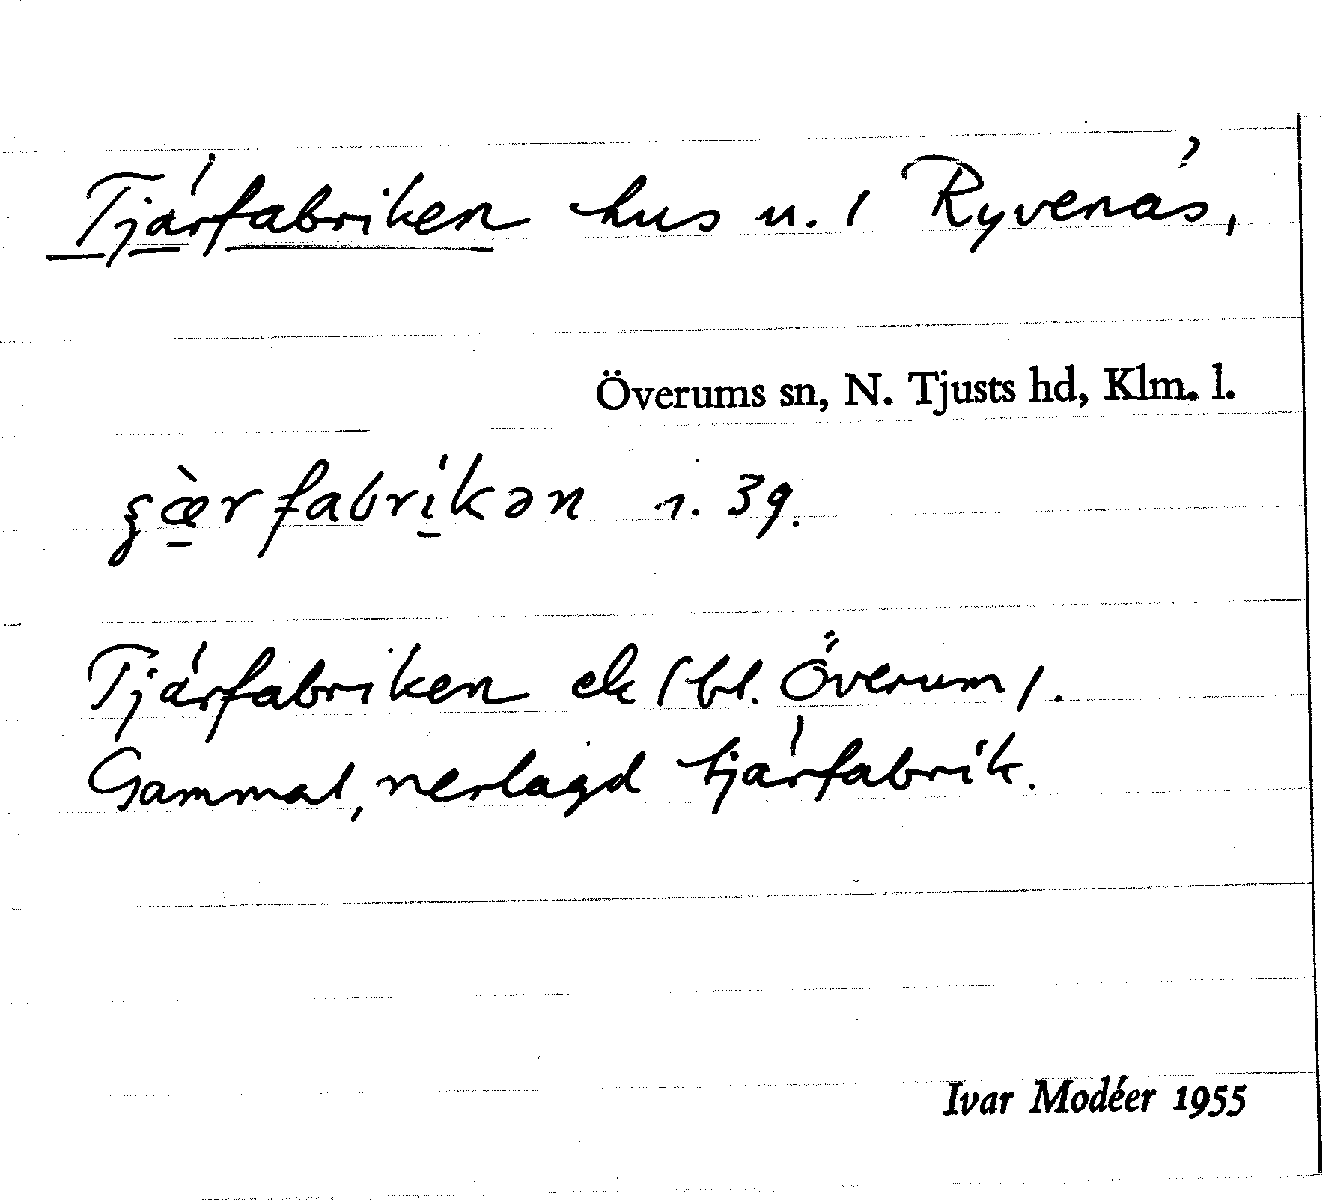 Tjärfabriken hus u. / Ryvenäs,
Överums sn, N. Tjusts hd, Klm. l.
fabrikən 1. 39.
Tjärfabriken ek (bl. Överum).
Gammal, nerlagd tjärfabrik.
Ivar Modéer 1955